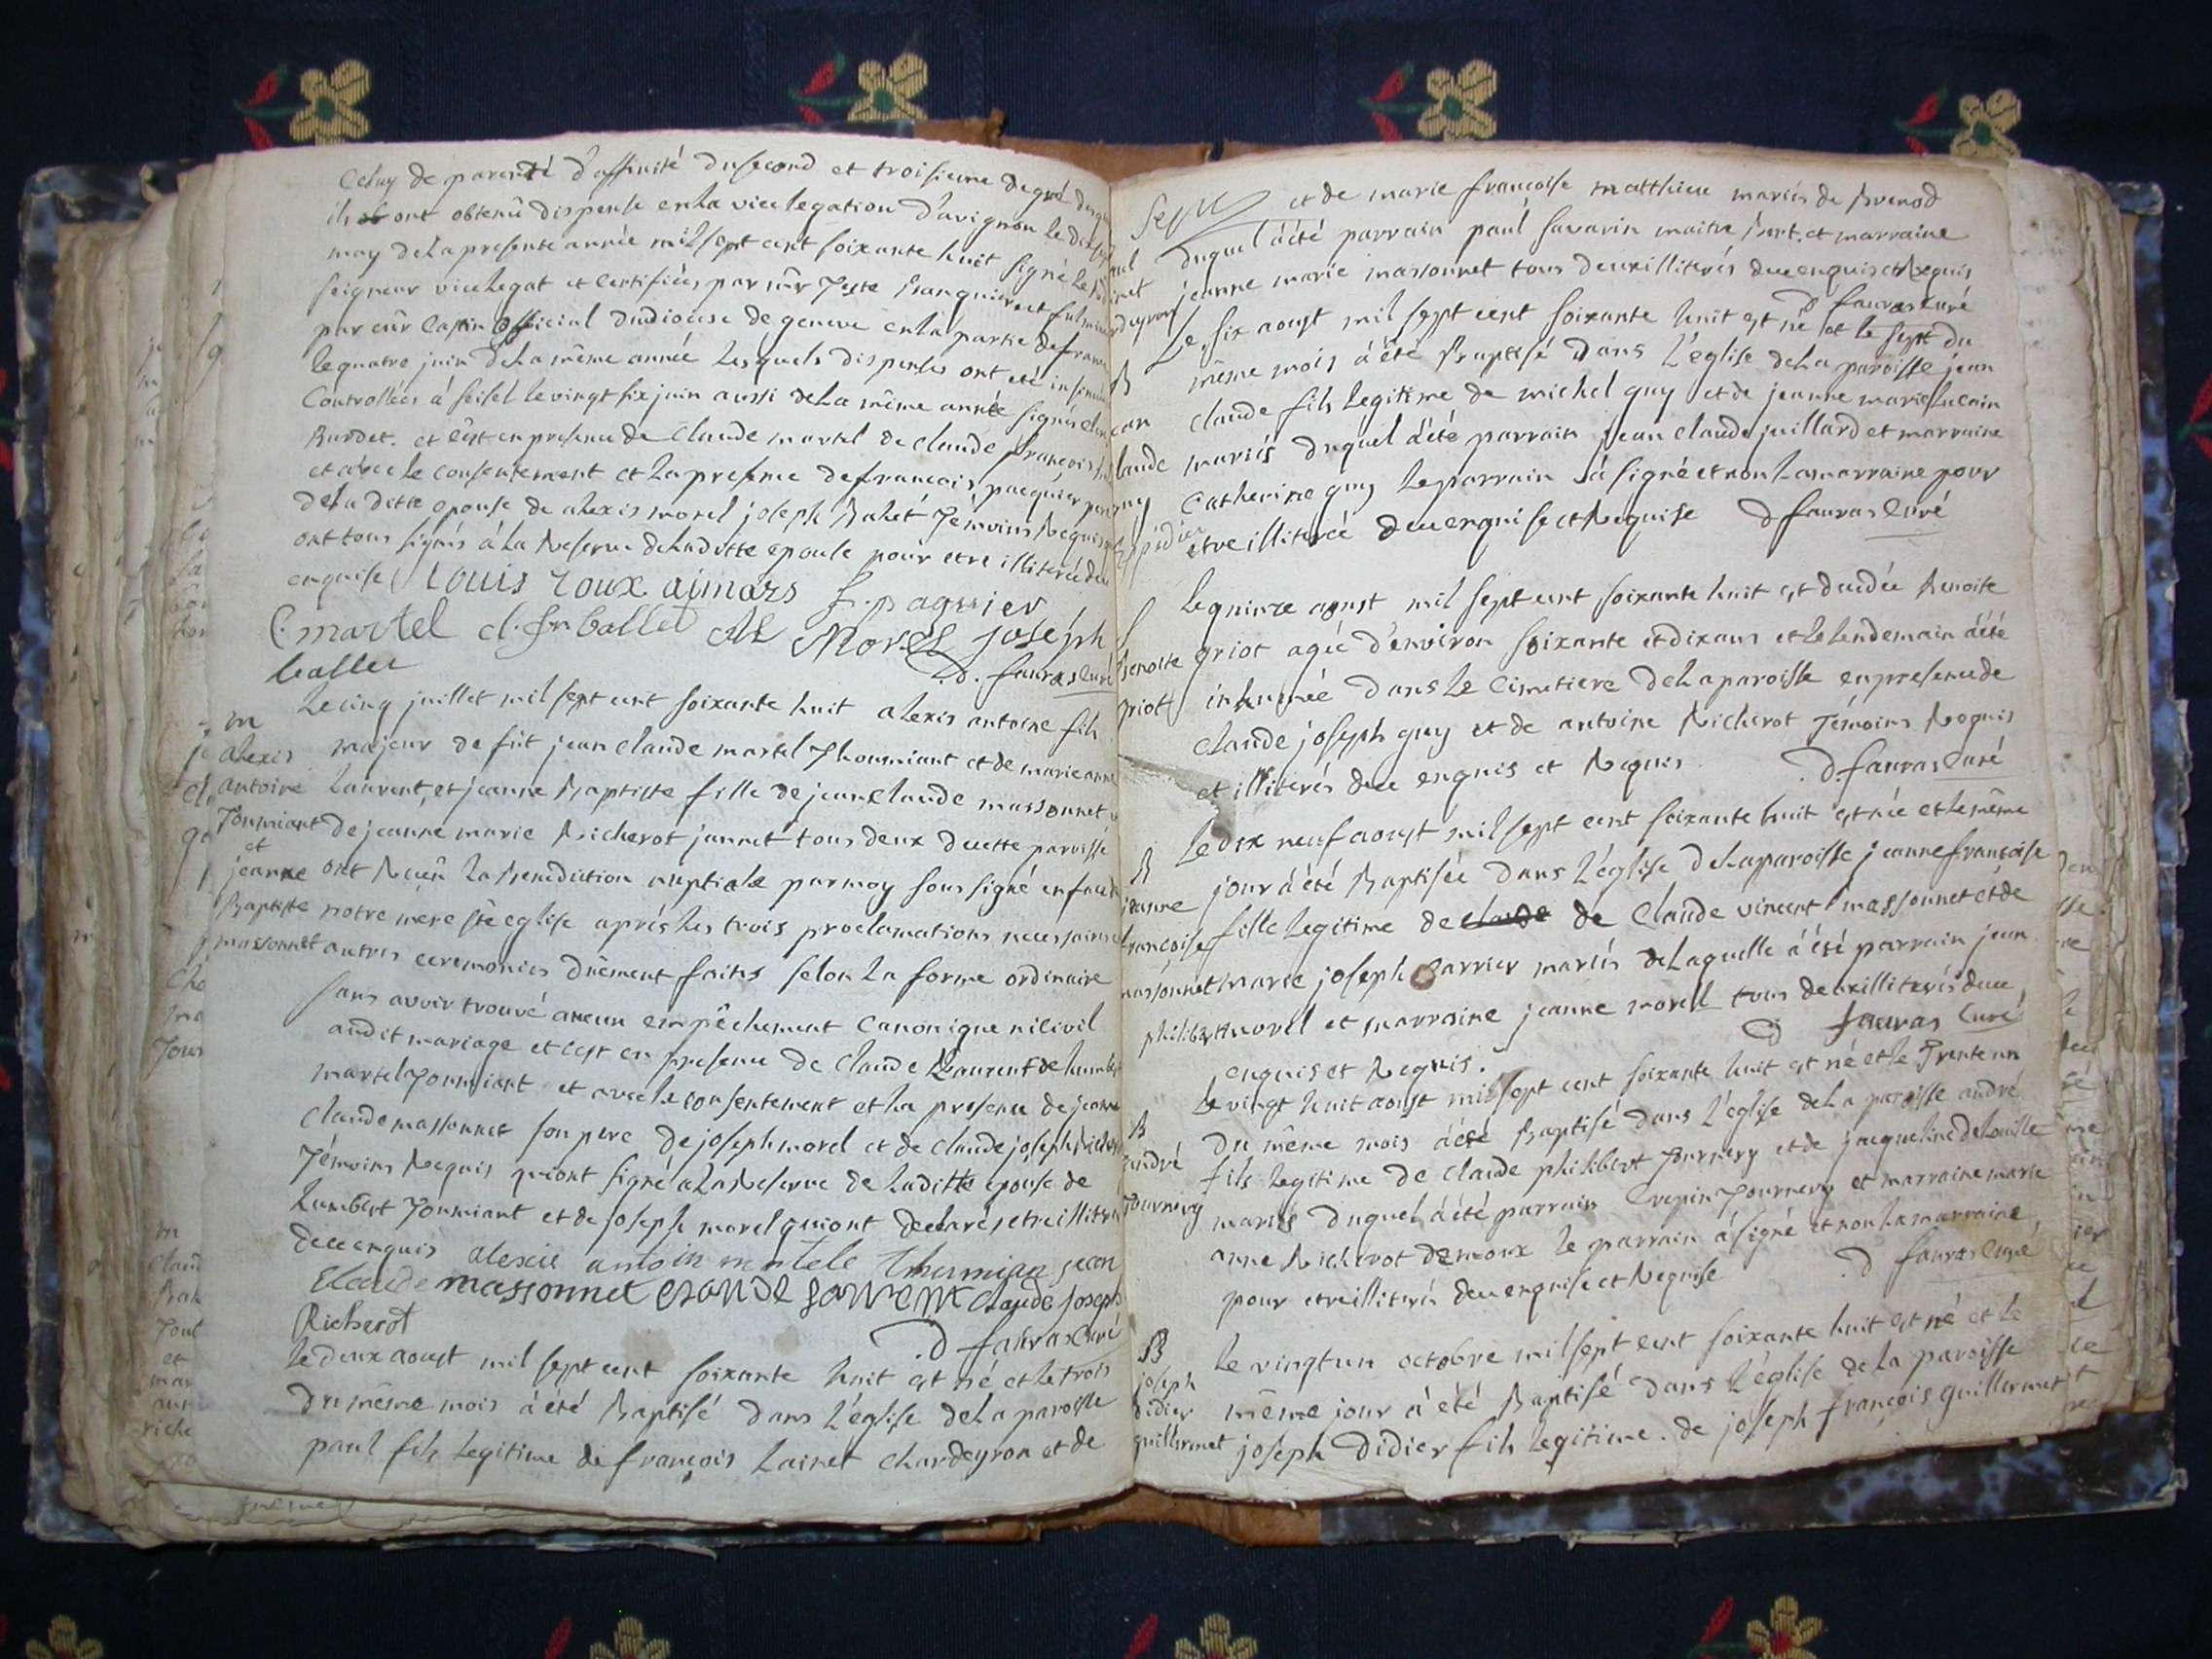 Celuy de parenté d'affinité du second et troisieme degré
ils ont obtenû dispense en la vicelegation d'avignon le
may de la presente année mil sept cent soixante huit signé le
seigneur vicelegat et certifiées par banquier et
par official du diocese de geneve en la partie de france
le quatre juin de la même année lesquels dispenses ont eté
Controllées à seisel le vingt six juin aussi de la même année signés
Burdet. et c'est en presence de Claude martel de claude françois
et avec le consentement et la presence de francois paquier
de la ditte epouse de alexis morel joseph Balet témoins Requis
ont tous signés à la Reserve de la ditte epouse pour etre illiterée
enquise Louis roux aimars f. paquier
C. martel cl. fr. ballet Al Morel joseph
ballet D. fauras Curé
Le cinq juillet mil sept cent soixante huit alexis antoine fils
m
alexis majeur de fût jean claude martel Thoumiant et de marie anne
antoine Laurent, et jeanne Baptiste fille de jean claude massonnet
Toumiant de jeanne marie Richerot jannet tous deux de cette paroisse
et
jeanne ont Receû la Benediction nuptiale par moy soussigné en face de
Baptiste notre mere ste eglise aprés les trois proclamations necessaires
massonnet autres ceremonies dûement faites selon la forme ordinaire
sans avoir trouvé aucun empêchement Canonique ni civil
audit mariage et c'est en presence de Claude Laurent de humbert
martel Toumiant et avec le consentement et la presence de jean
Claude massonnet son pere de joseph morel et de claude joseph Richerot
Témoins Requis qui ont signé a la Reserve de la ditte epouse de
humbert Toumiant et de joseph morel qui ont declaré etre illiterés
de ce enquis alexis antoin martele jean
Claude massonnet claude Joseph
Richerot D fauras Curé
Le deux aoust mil sept cent soixante huit est né et le trois
du même mois à été Baptisé dans l'église de La paroisse
paul fils legitime de françois Lainet chardeyron et de
et de marie françoise matthieu mariés de Brenod
duquel à été parrain paul savarin maitre et marraine
jeanne marie massonnet tous deux illiterés de ce enquis et Requis
D fauras curé
Le six aoust mil sept cent soixante huit est né et le sept du
B même mois à été Baptisé dans L'eglise de La paroisse jean
claude fils legitime de michel guy et de jeanne marie
mariés duquel à été parrain jean claude juillard et marraine
Catherine guy le parrain à signé et non la marraine pour
etre illiterée de ce enquise et Requise D fauras Curé
Le quinze aoust mil sept cent soixante huit est decedée Benoite
Benoite griot agée d'environ soixante et dix ans et le lendemain à été
griot inhumée dans le Cimetiere de La paroisse en presence de
claude joseph guy et de antoine Richerot Témoins Requis
et illiterés de ce enquis et Requis. D. fauras Curé
Le dix neuf aoust mil sept cent soixante huit est née et le même
B jour à été Baptisée dans L'église de La paroisse jeanne françoise
jeanne
françoise fille legitime de claude de Claude vincent massonnet et de
massonnet marie joseph Carrier mariés de Laquelle à été parrain jean
philibert morel et marraine jeanne morell tous deux illiterés de ce
enquis et Requis. D fauras Curé
Le vingt huit aoust mil sept cent soixante huit est né et le Trente un
B du même mois à été Baptisé dans l'eglise de La paroisse andré
andré fils legitime de Claude philibert Tournery et de jacqueline delouille
Tournery mariés duquel à été parrain Crepin Tournery et marraine marie
anne Richerot demoux le parrain à signé et non la marraine
pour etre illiterée de ce enquise et Requise D fauras Curé
B Le vingt un octobre mil sept cent soixante huit est né et le
joseph
didier même jour à été Baptisé dans l'église de La paroisse
guillermet joseph Didier fils Legitime de joseph françois guillermet